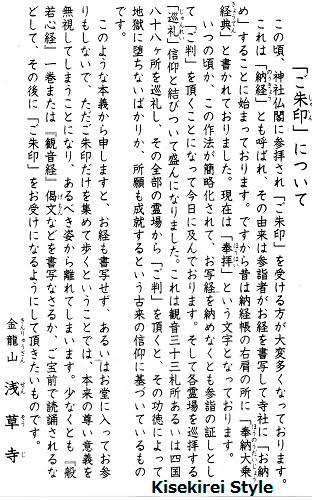 「ご朱印」について
この頃、神社仏閣に参拝され「ご朱印」を受ける方が大変多くなっております。
これは「納経」とも呼ばれ、その由来は参詣者がお経を書写して寺社に「お納
め」することに始まっております。ですから昔は納経帳の右肩の所に「奉納大乗
経典」と書かれておりました。現在は「奉拝」という文字となっております。
いつの頃か、この作法が簡略化されて、お写経を納めなくとも参詣の証しとし
て「ご判」を頂くことになって今日に及んでおります。そして各霊場を巡拝する
「巡礼」信仰と結びついて盛んになりました。これは観音三十三札所あるいは四国
八十八ヶ所を巡礼し、その全部の霊場から「ご判」を頂くと、その功徳によって
地獄に堕ちないばかりか、所願も成就するという古来の信仰に基づいているもの
です。
このような本義から申しますと、お経も書写せず、あるいはお堂に入ってお参
りもしないで、ただご朱印だけを集めて歩くということでは、本来の尊い意義を
無視してしまうことになり、あるべき姿から離れてしまいます。少なくとも『般
若心経』一巻または『観音経』偈文などを書写なさるか、ご宝前で読誦されるな
どして、その後に「ご朱印」をお受けになるようにして頂きたいものです。
金龍山 浅草寺
Kisekirei Style